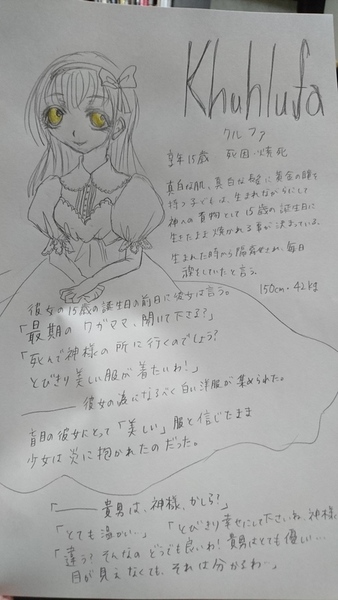 Khuhlufa
クルファ
享年15歳 死因・焼死
真白な肌、真白な髪に黄金の瞳を
持つ子どもは、生まれながらにして
神への貢物として15歳の誕生日に
生きたまま焼かれる事が決まっている。
生まれた時から隔離され、毎日
していたと言う。
150cm・42kg
彼女の15歳の誕生日の前日に彼女は言う。
「最期のワガママ、聞いて下さる?」
「死んで神様の所に行くのでしょう?
とびきり美しい服が着たいわ!」
――― 彼女の為になるべく白い洋服が集められた。
盲目の彼女にとって「美しい」服と信じたまま
少女は炎に抱かれたのだった。
「――― 貴男は、神様、かしら!」
「とても温かい…」「とびきり幸せにして下さいね、神様」
「違う?そんなのどうでも良いわ!貴男はとても優しい…
目が見えなくても、それは分かるわ…」